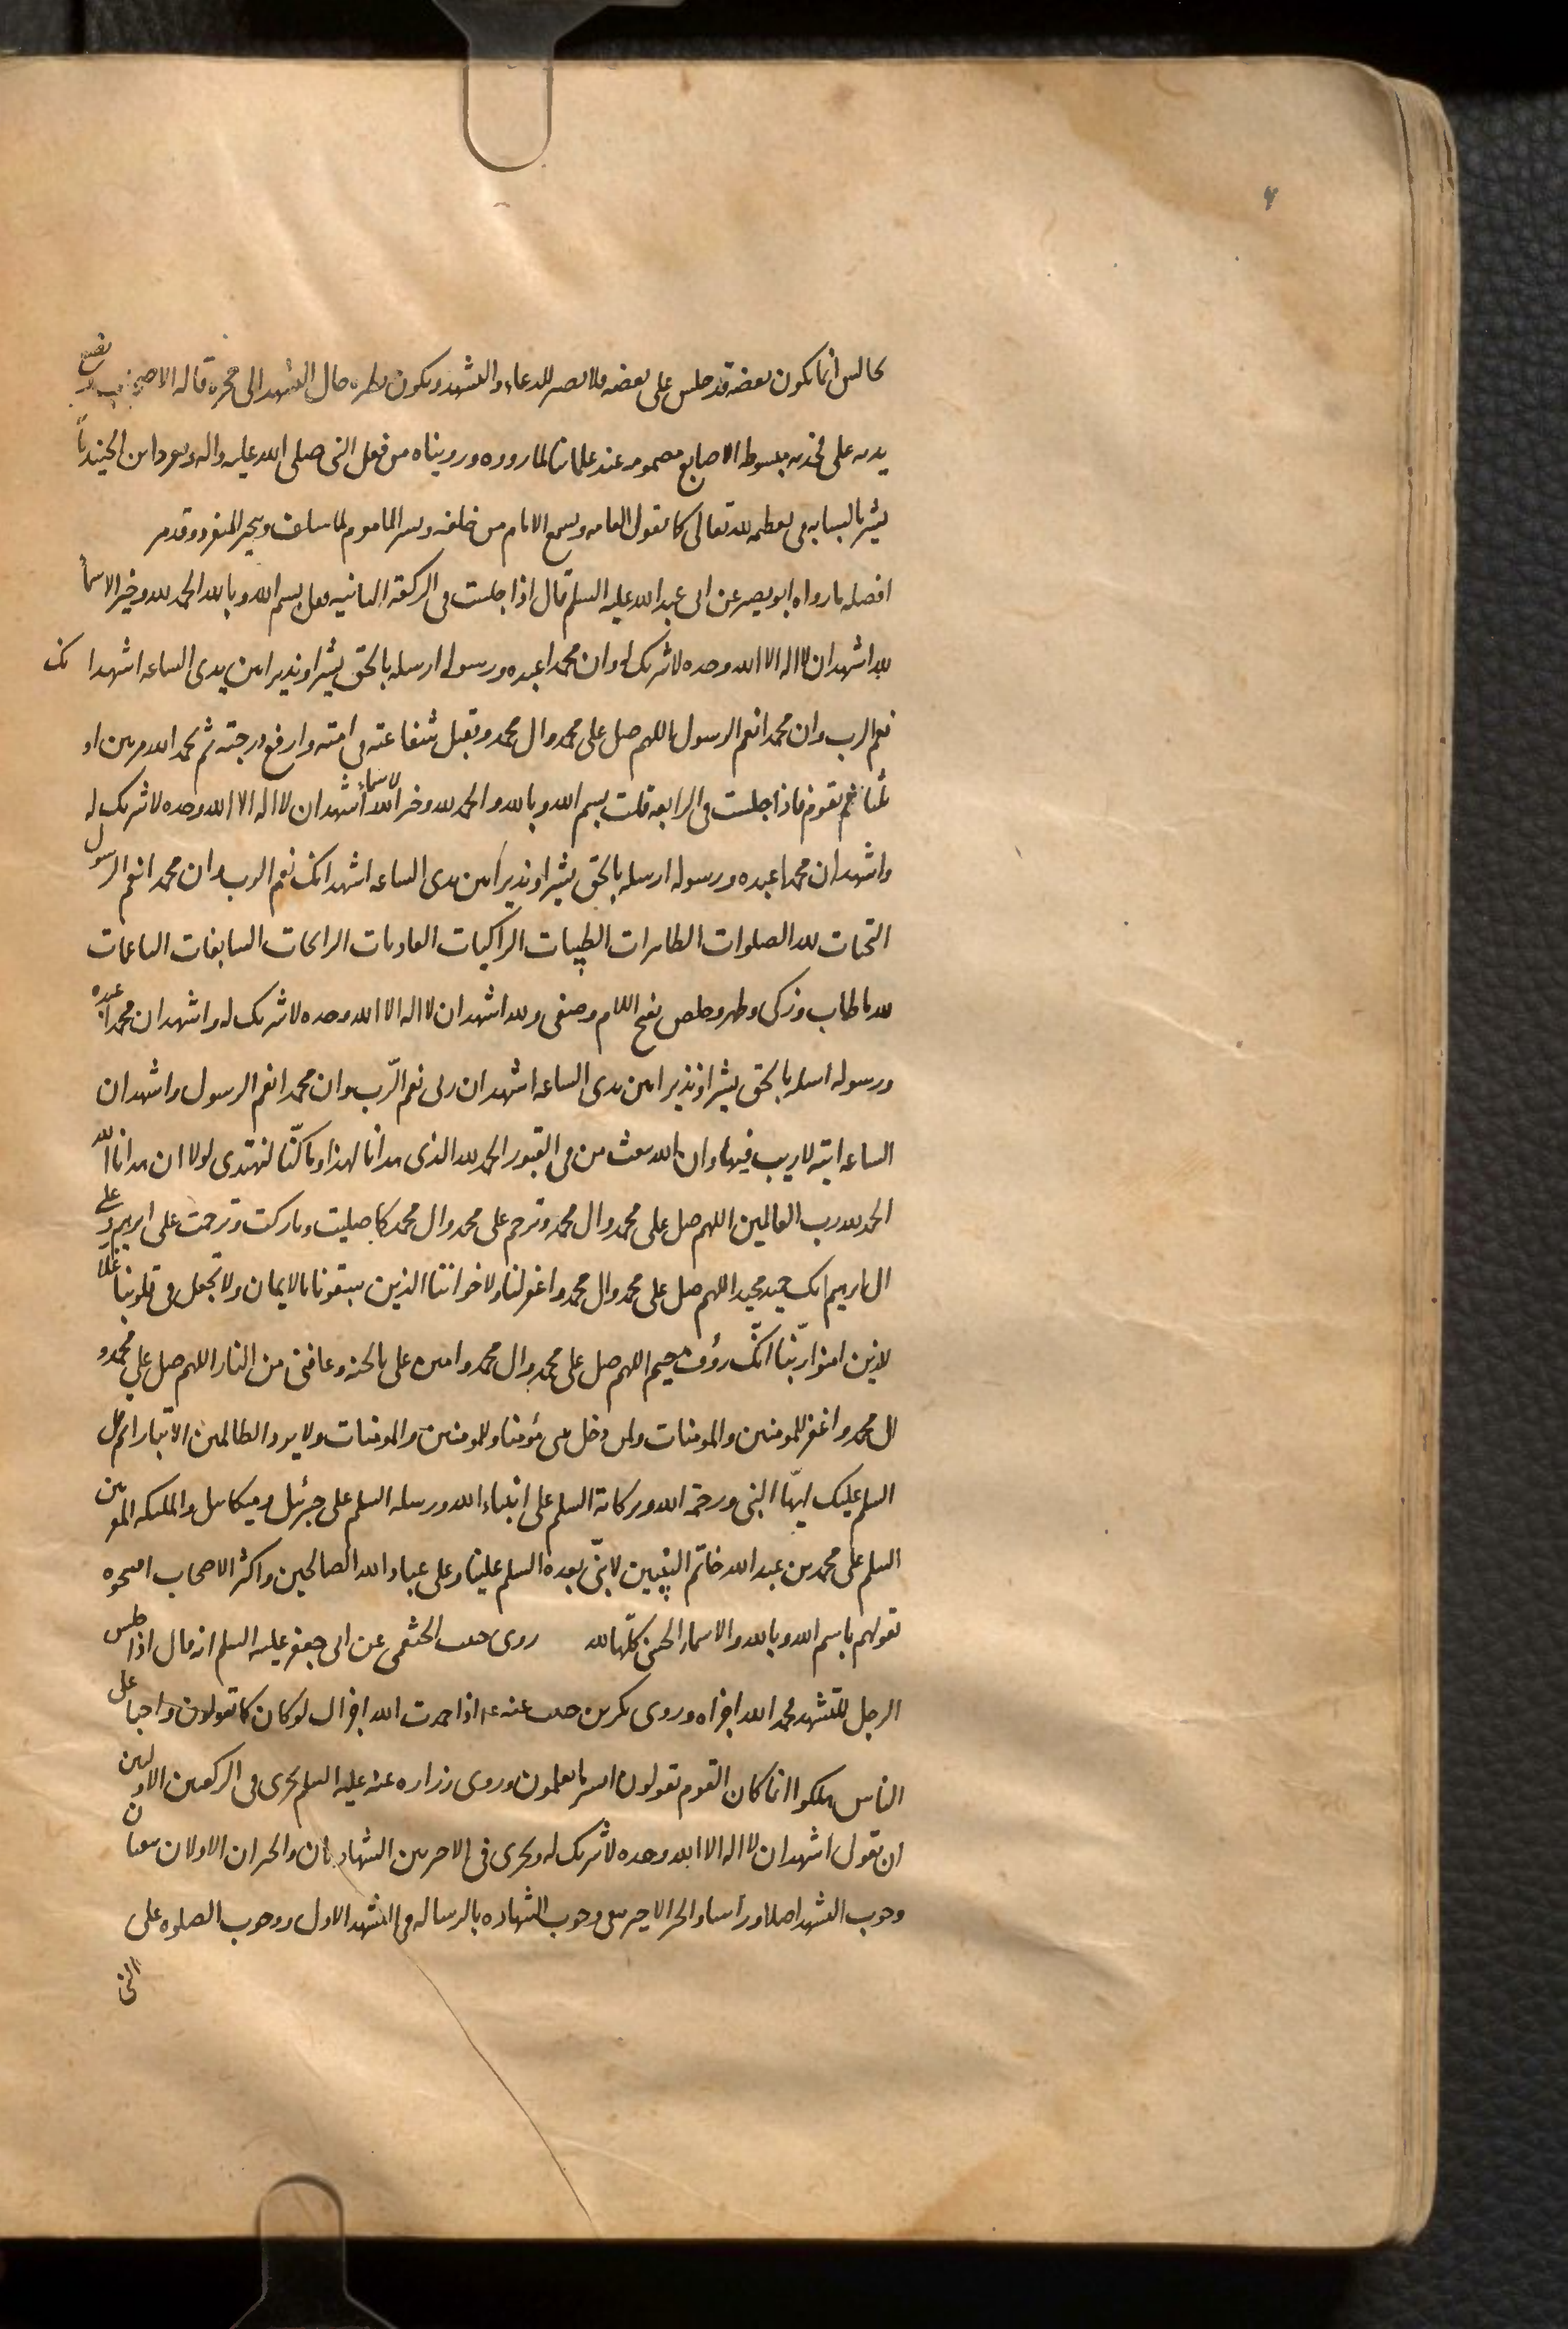 ۴
كالس انما يكون بعضه قد جلس على بعضه فلا يصبر للدعاء والتشهد ويكون نظره حال التشهد الى حجره قاله الاصحاب ويضع
يديه على فخذيه مبسوطه الاصابع مضمومه عند علمائنا لما رووه وروينا من فعل النبي صلى الله عليه واله وتفرد ابن الجنيد بان
يشير بالسبابه في تعظيمه لله تعالى كما تقول العامه ويسمع الامام من خلفه ويسر الماموم لما سلف ويتخير المنفرد وقد مر
افضله ما رواه ابو بصير عن ابى عبد الله عليه السلم قال اذا جلست في الركعة الثانيه فقل بسم الله وبالله والحمد لله وخير الاسما
لله اشهد ان لا اله الا الله وحده لا شريك له وان محمدا عبده ورسوله ارسله بالحق بشيرا ونذيرا بين يدى الساعه اشهد انك
نعم الرب وان محمدا نعم الرسول اللهم صل على محمد وال محمد وتقبل شفاعته في امته وارفع درجته ثم تحمد الله مرتين او
ثلثا ثم تقوم فاذا جلست في الرابعه قلت بسم الله وبالله والحمد لله وخير الاسماء لله اشهد ان لا اله الا الله وحده لا شريك له
واشهد ان محمدا عبده ورسوله ارسله بالحق بشيرا ونذيرا بين يدى الساعه اشهد انك نعم الرب وان محمدا نعم الرسول
التحيات لله الصلوات الطاهرات الطيبات الزاكيات الغاديات الرائحات السابغات الناعمات
لله ما طاب وزكى وطهر وخلص بفتح اللام وصفى ولله اشهد ان لا اله الا الله وحده لا شريك له واشهد ان محمدا عبده
ورسوله ارسله بالحق بشيرا ونذيرا بين يدى الساعه اشهد ان ربى نعم الرّب وان محمدا نعم الرسول واشهد ان
الساعه اتيه لا ريب فيها وان الله يبعث من في القبور الحمد لله الذى هدانا لهذا وما كنّا لنهتدى لولا ان هدانا الله
الحمد لله رب العالمين اللهم صل على محمد وال محمد وترحم على محمد وال محمد كما صليت وباركت وترحمت على ابرهيم وعلى
ال ابرهيم انك حميد مجيد اللهم صل على محمد وال محمد واغفر لنا ولاخواننا الذين سبقونا بالايمان ولا تجعل في قلوبنا غلا
للذين امنوا ربّنا انّك رؤف رحيم اللهم صل على محمد وال محمد وامنن على بالجنه وعافنى من النار اللهم صل على محمد و
ال محمد واغفر للمومنين والمومنات ولمن دخل بيتى مؤمنا وللمومنين والمومنات ولا يزد الظالمين الا تبارا ثم قل
السلم عليك ايّها النبى ورحمة الله وبركاته السلم على انبياء الله ورسله السلم على جبرئيل وميكائيل والملئكه المقربين
السلم على محمد بن عبد الله خاتم النبيين لا نبّى بعده السلم علينا وعلى عباد الله الصالحين واكثر الاصحاب افتتحوه
بقولهم باسم الله وبالله والاسماء الحسنى كلّها لله روى حبيب الخثعمى عن ابى جعفر عليه السلم انه قال اذا جلس
الرجل للتشهد فحمد الله اجزاه وروى بكر بن حبيب عنه ع اذا حمدت الله اجزاك لو كان كما تقولون واجبا على
الناس هلكوا انما كان القوم يقولون ايسر ما يعلمون وروى زراره عنه عليه السلم يجزى في الركعتين الاولتين
ان تقول اشهد ان لا اله الا الله وحده لا شريك له ويجزى في الاخيرتين الشهادتان والخبران الاولان ينفيان
وجوب التشهد اصلا وراسا والخبر الاخير ينفى وجوب الشهاده بالرساله في التشهد الاول ووجوب الصلوه على
النبي